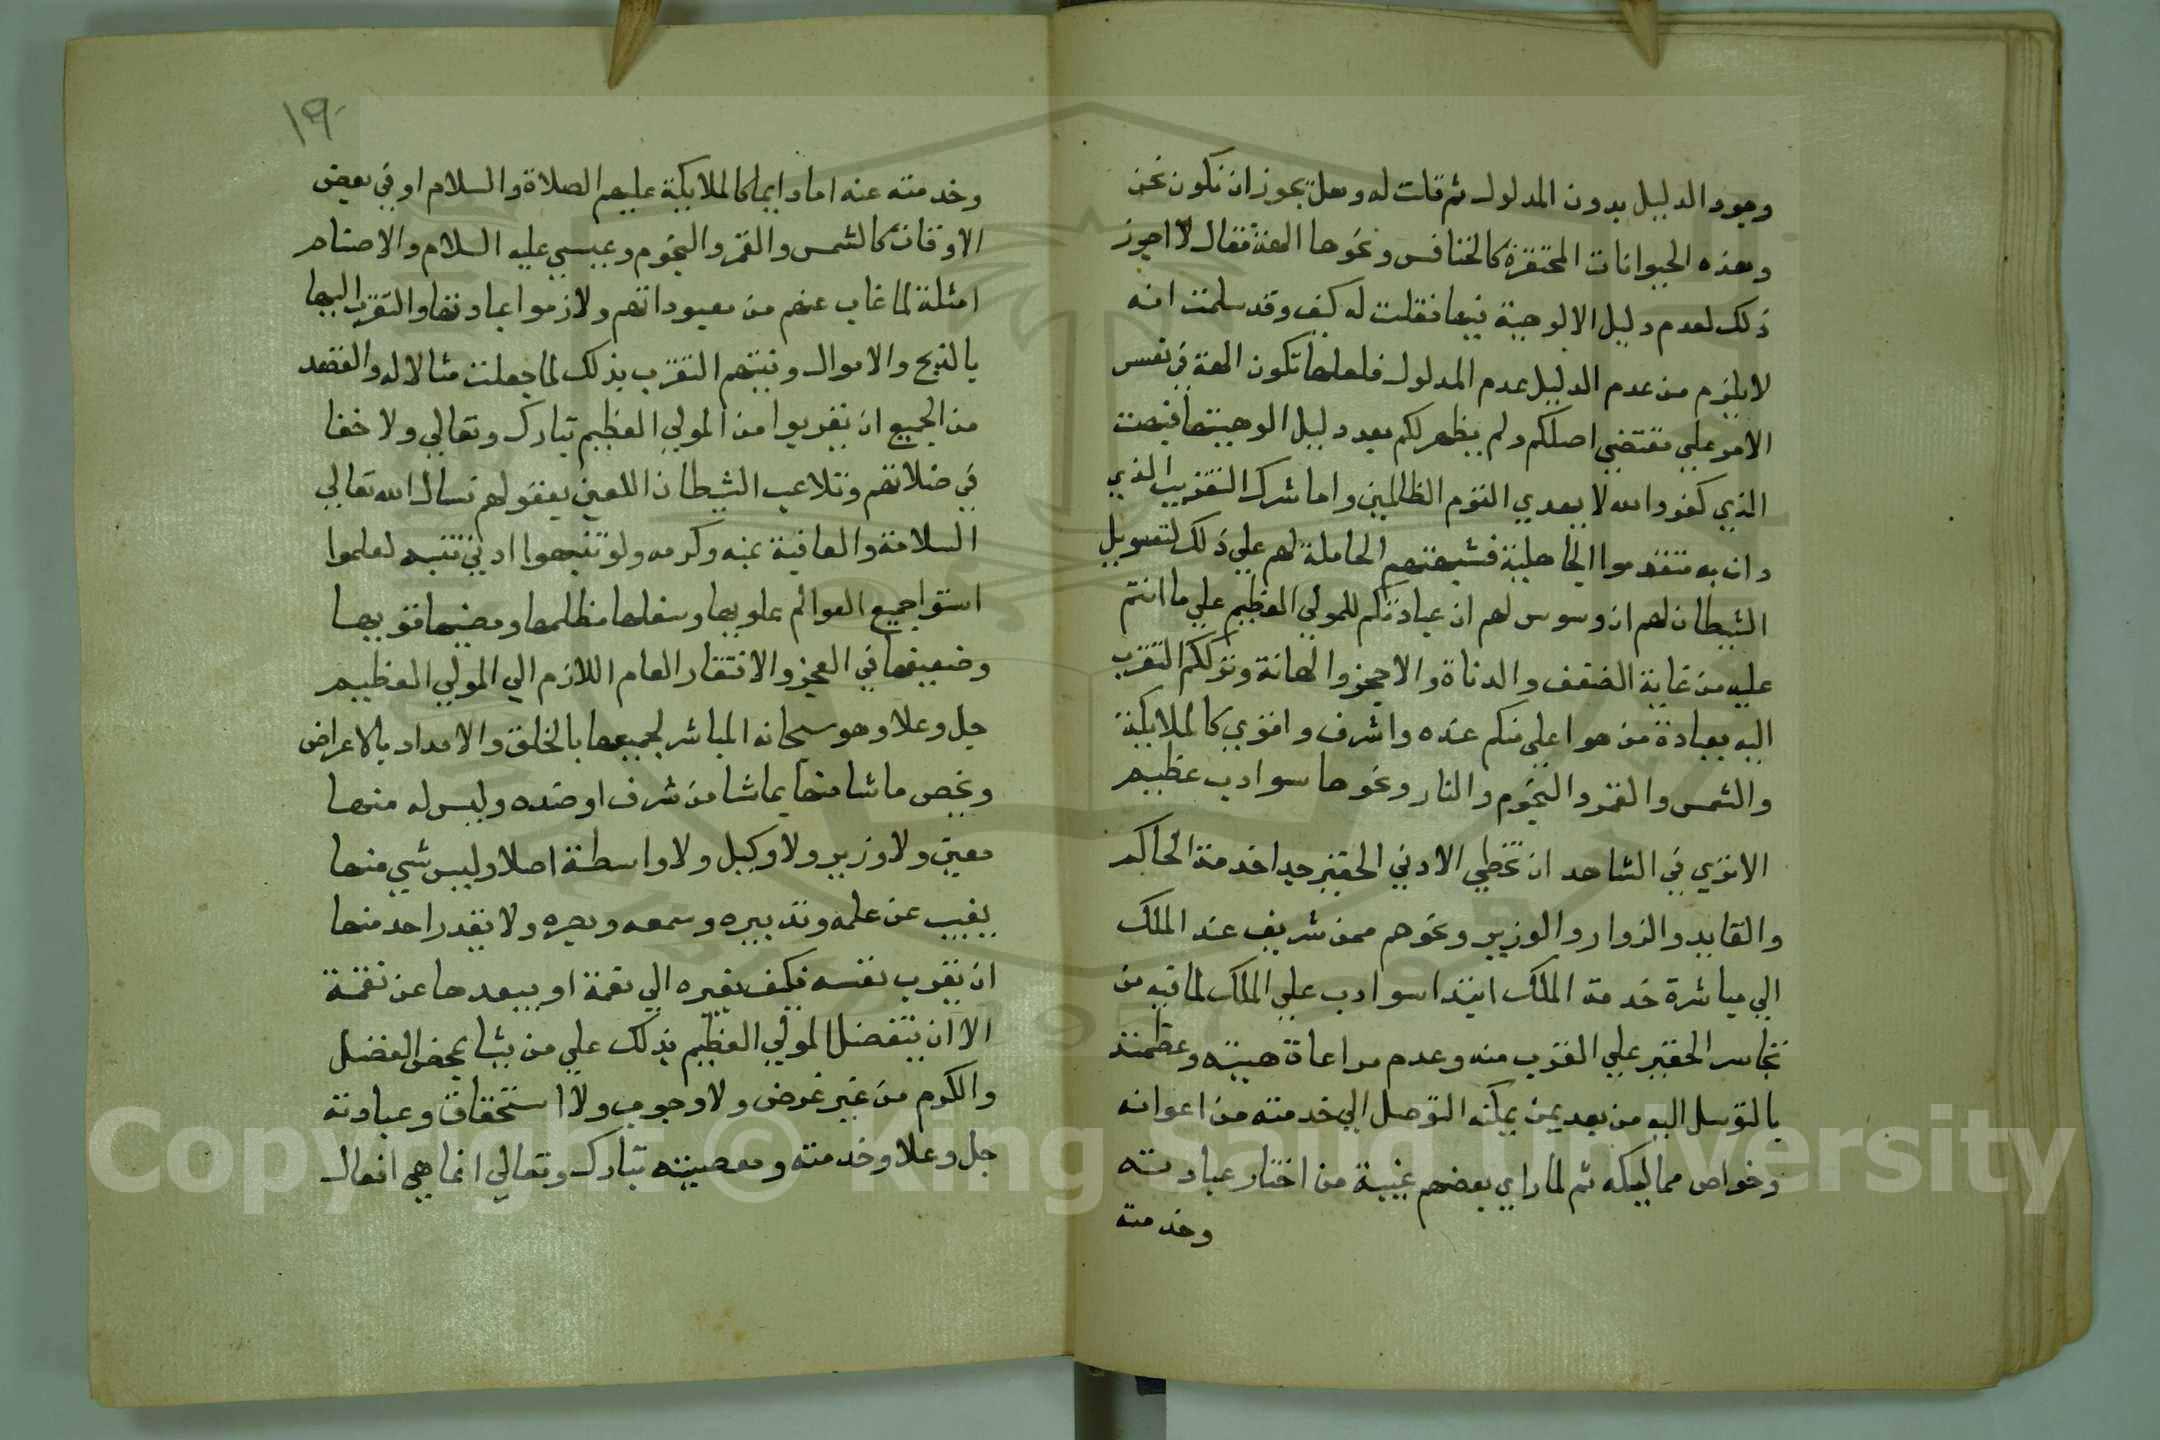 وجود الدليل بدون المدلول ثم قلت له وهل يجوز ان تكون نحن
وهذه الحيوانات المحتقرة كالخنافس ونحوها الهة فقال لا اجوز
ذلك لعدم دليل الالوهية فيها فقلت له كيف وقد سلمت انه
لا يلزم من عدم الدليل عدم المدلول فلعلها تكون الهة في نفس
الامر علي مقتضي اصلكم ولم يظهر لكم بعد دليل الوهيتها فبهت
الذي كفر والله لا يهدي القوم الظالمين واما شرك التقريب الذي
دان به متقدموا الجاهلية فشبهتهم الحاملة لهم علي ذلك لتسويل
الشيطان لهم ان وسوس لهم ان عبادتكم للمولي العظيم علي ما انتم
عليه من غاية الضعف والدناة والاعجز والهانة وترككم التقرب
اليه بعبادة من هو اعلي منكم عنده واشرف واقوي كالملايكة
والشمس والقمر والنجوم والنار ونحوها سو ادب عظيم
الا تري في الشاهد ان تخطي الادني الحقير جدا خدمة الحاكم
والقايد والزوار والوزير ونحوهم ممن شريف عند الملك
الي مباشرة خدمة الملك ابتدا سو ادب علي الملك لما فيه من
تجاسر الحقير علي القرب منه وعدم مراعاة هيبته وعظمته
بالتوسل اليه من بعد بمن يمكنه التوصل الي خدمته من اعوانه
وخواص مماليكه ثم لما راي بعضهم غيبة من اختار عبادته
وخدمته
١٩
وخدمته عنه اما دايما كالملايكة عليهم الصلاة والسلام او في بعض
الاوقات كالشمس والقمر والنجوم وعيسي عليه السلام والاصنام
امثلة لما غاب عنهم من معبوداتهم ولازموا عبادتها والتقرب اليها
بالذبح والاموال ونيتهم التقرب بذلك لما جعلت مثالا له والقصد
من الجميع ان يقربوا من المولي العظيم تبارك وتعالي ولا خفا
في ضلالتهم وتلاعب الشيطان اللعين بعقولهم نسال الله تعالي
السلامة والعافية بمنه وكرمه ولو تنبهوا ادني تنبه لعلموا
استوا جميع العوالم علويها وسفلها مظلمها ومضيها قويها
وضعيفها في العجز والافتقار العام اللازم الي المولي العظيم
جل وعلا وهو سبحانه المباشر لجميعها بالخلق والامداد بالاعراض
ويخص ما شا منها بما شا من شرف او ضده وليس له منها
معين ولا وزير ولا وكيل ولا واسطة اصلا وليس شي منها
يغيب عن علمه وتدبيره وسمعه وبصره ولا يقدر احد منها
ان يقرب نفسه فكيف بغيره الي نعمة او يبعدها عن نقمة
الا ان يتفضل المولي العظيم بذلك علي من يشا بمحض الفضل
والكرم من غير غرض ولا وجوب ولا استحقاق وعبادته
جل وعلا وخدمته ومعصيته تبارك وتعالي انما هي افعال
Copyright © King Saud University